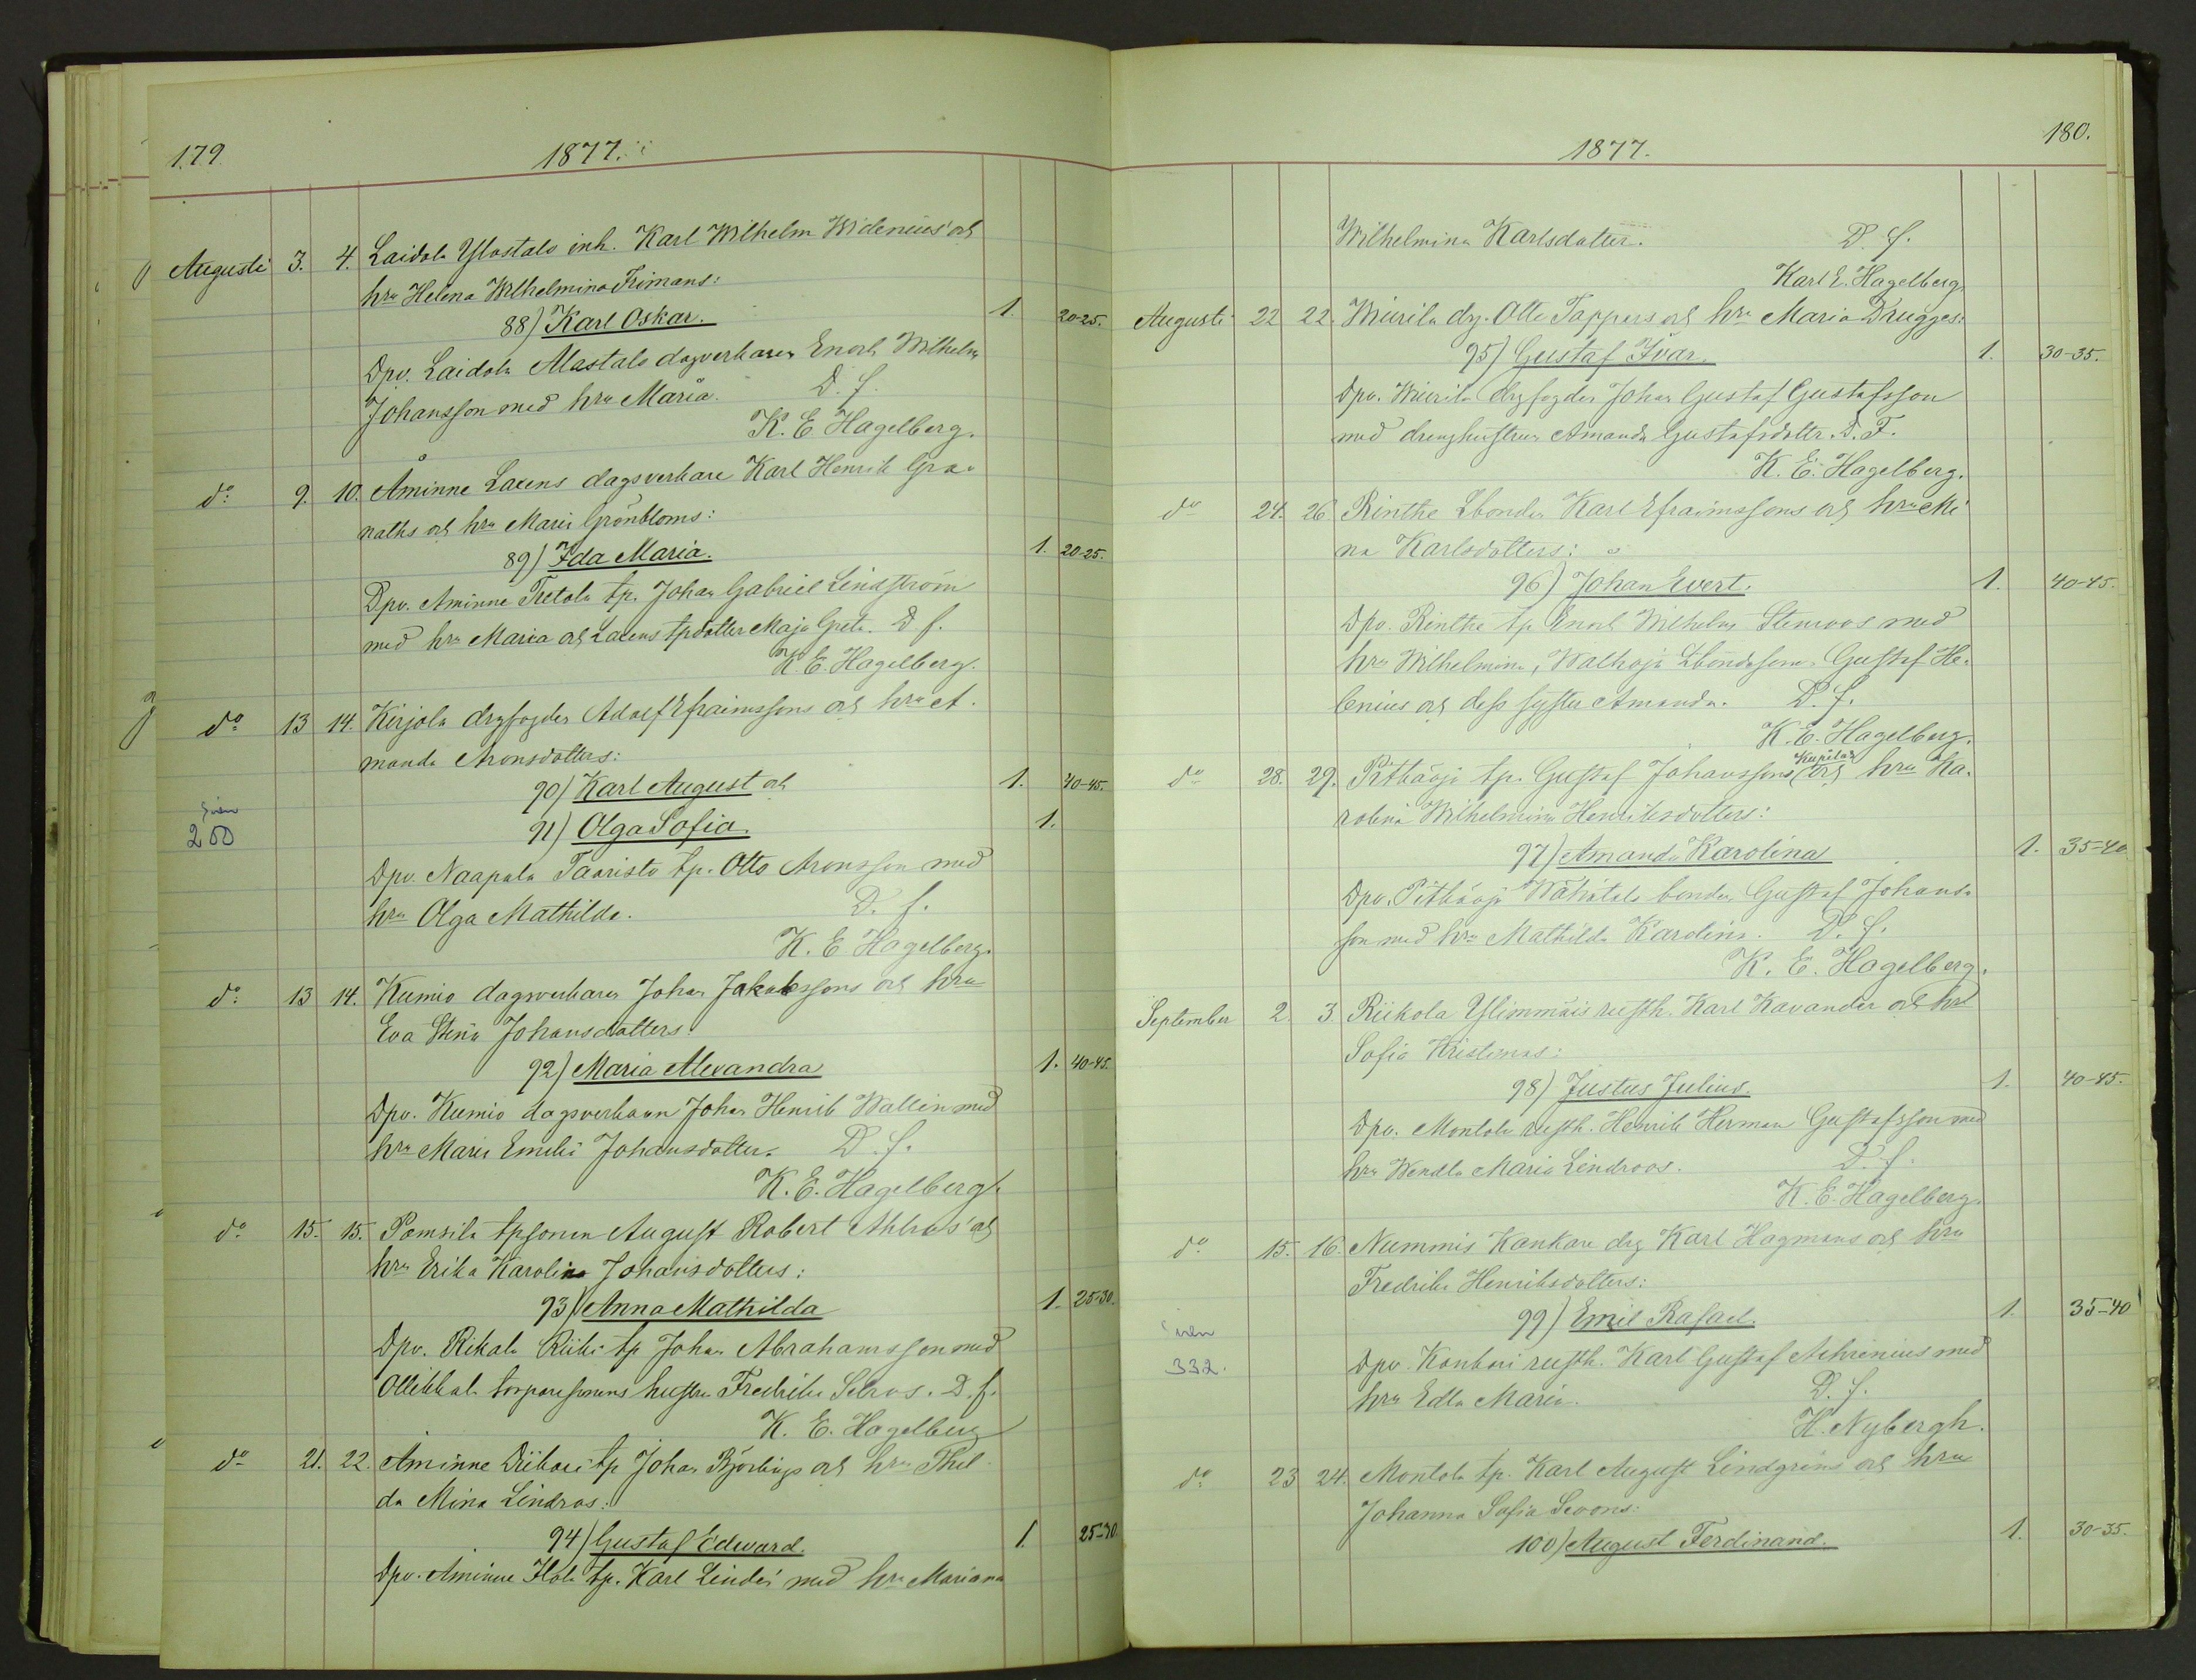 179.
1877.
Augusti 3. 4. Laidola Ylostalo inh. Karl Wilhelm Widenius' och
hru Helena Wilhelmina Frimans:
88) Karl Oskar. 1. 20-25.
Dpv. Laidola Alastalo dagsverkaren Enoch Wilhelm
Johansson med hru Maria. D. f.
K. E. Hagelberg.
do: 9. 10. Åminne Laxens dagsverkare Karl Henrik Gra-
naths och hru Maria Grönbloms:
89) Ida Maria. 1. 20-25.
Dpv. Aminne Tretola tp. Johan Gabriel Lindström
med hru Maria och Laxens tpdotter Maja Greta. D. f.
K. E. Hagelberg.
do 13 14. Kirjola drgfogden Adolf Efraimssons och hru A-
manda Aronsdotters:
90) Karl August och 1. 40-45.
91) Olga Sofia. 1.
200
Dpv. Naapala Taaristo tp. Otto Aronsson med
hru Olga Mathilda. D. f.
K. E. Hagelberg.
do: 13 14. Kumio dagsverkaren Johan Jakobssons och hru
Eva Stina Johansdotters:
92) Maria Alexandra 1. 40-45.
Dpv. Kumio dagsverkaren Johan Henrik Wallin med
hru Maria Emilia Johansdotter. D. f.
K. E. Hagelberg.
do 15. 15. Pamsila tpsonen August Robert Ahlros' och
hru Erika Karolina Johansdotters:
93) Anna Mathilda 1. 25-30.
Dpv. Rikala Riihi tp Johan Abrahamsson med
Ollikkala torparesonens hustru Fredrika Selros. D. f.
K. E. Hagelberg
do 21. 22. Aminne Diikari tp Johan Björlings och hru Thil-
da Mina Lindros:
94) Gustaf Edward. 1. 25-30.
Dpv. Aminne Hola tp. Karl Linde' med hru Mariana
180.
1877.
Wilhelmina Karlsdotter. D. f.
Karl E. Hagelberg.
Augusti 22 22. Wiurila drg. Otto Tappers och hru Maria Drugges:
95) Gustaf Ivar. 1. 30-35.
Dpv. Wiurila drgfogden Johan Gustaf Gustafsson
med drenghustrun Amanda Gustafsdotter. D. F.
K. E. Hagelberg.
do 24. 26. Rinthe Lbonden Karl Efraimssons och hru Mi-
na Karlsdotters:
96) Johan Evert. 1. 40-45.
Dpv. Rinthe tp Enoch Wilhelm Stenroos med
hru Wilhelmina, Walhoja Lbondeson Gustaf He-
lenius och dess syster Amanda. D. f.
K. E. Hagelberg.
Kupila
do 28. 29. Pitkäoja tp. Gustaf Johanssons och hru Ka-
rolina Wilhelmina Henriksdotters:
97) Amanda Karolina 1. 35-40
Dpv. Pitkäoja Wähätalo bonden Gustaf Johans-
son med hru Mathilda Karolina. D. f.
K. E. Hagelberg.
September 2. 3. Riikola Ylimmäis rusth. Karl Kavander och hru
Sofia Kristinas:
98) Justus Julius 1. 40-45.
Dpv. Montola rusth. Henrik Herman Gustafsson med
hru Wendla Maria Lindroos. D. f.
K. E. Hagelberg.
do 15. 16. Nummis Kankare drg Karl Hagmans och hru
Fredrika Henriksdotters:
99) Emil Rafael. 1. 35-40
332.
Dpv. Konkari rusth. Karl Gustaf Achrenius med
hru Edla Maria. D. f.
H. Nybergh.
do: 23 24. Montola tp. Karl August Lindgrens och hru
Johanna Sofia Sevons:
100) August Ferdinand. 1. 30-35.